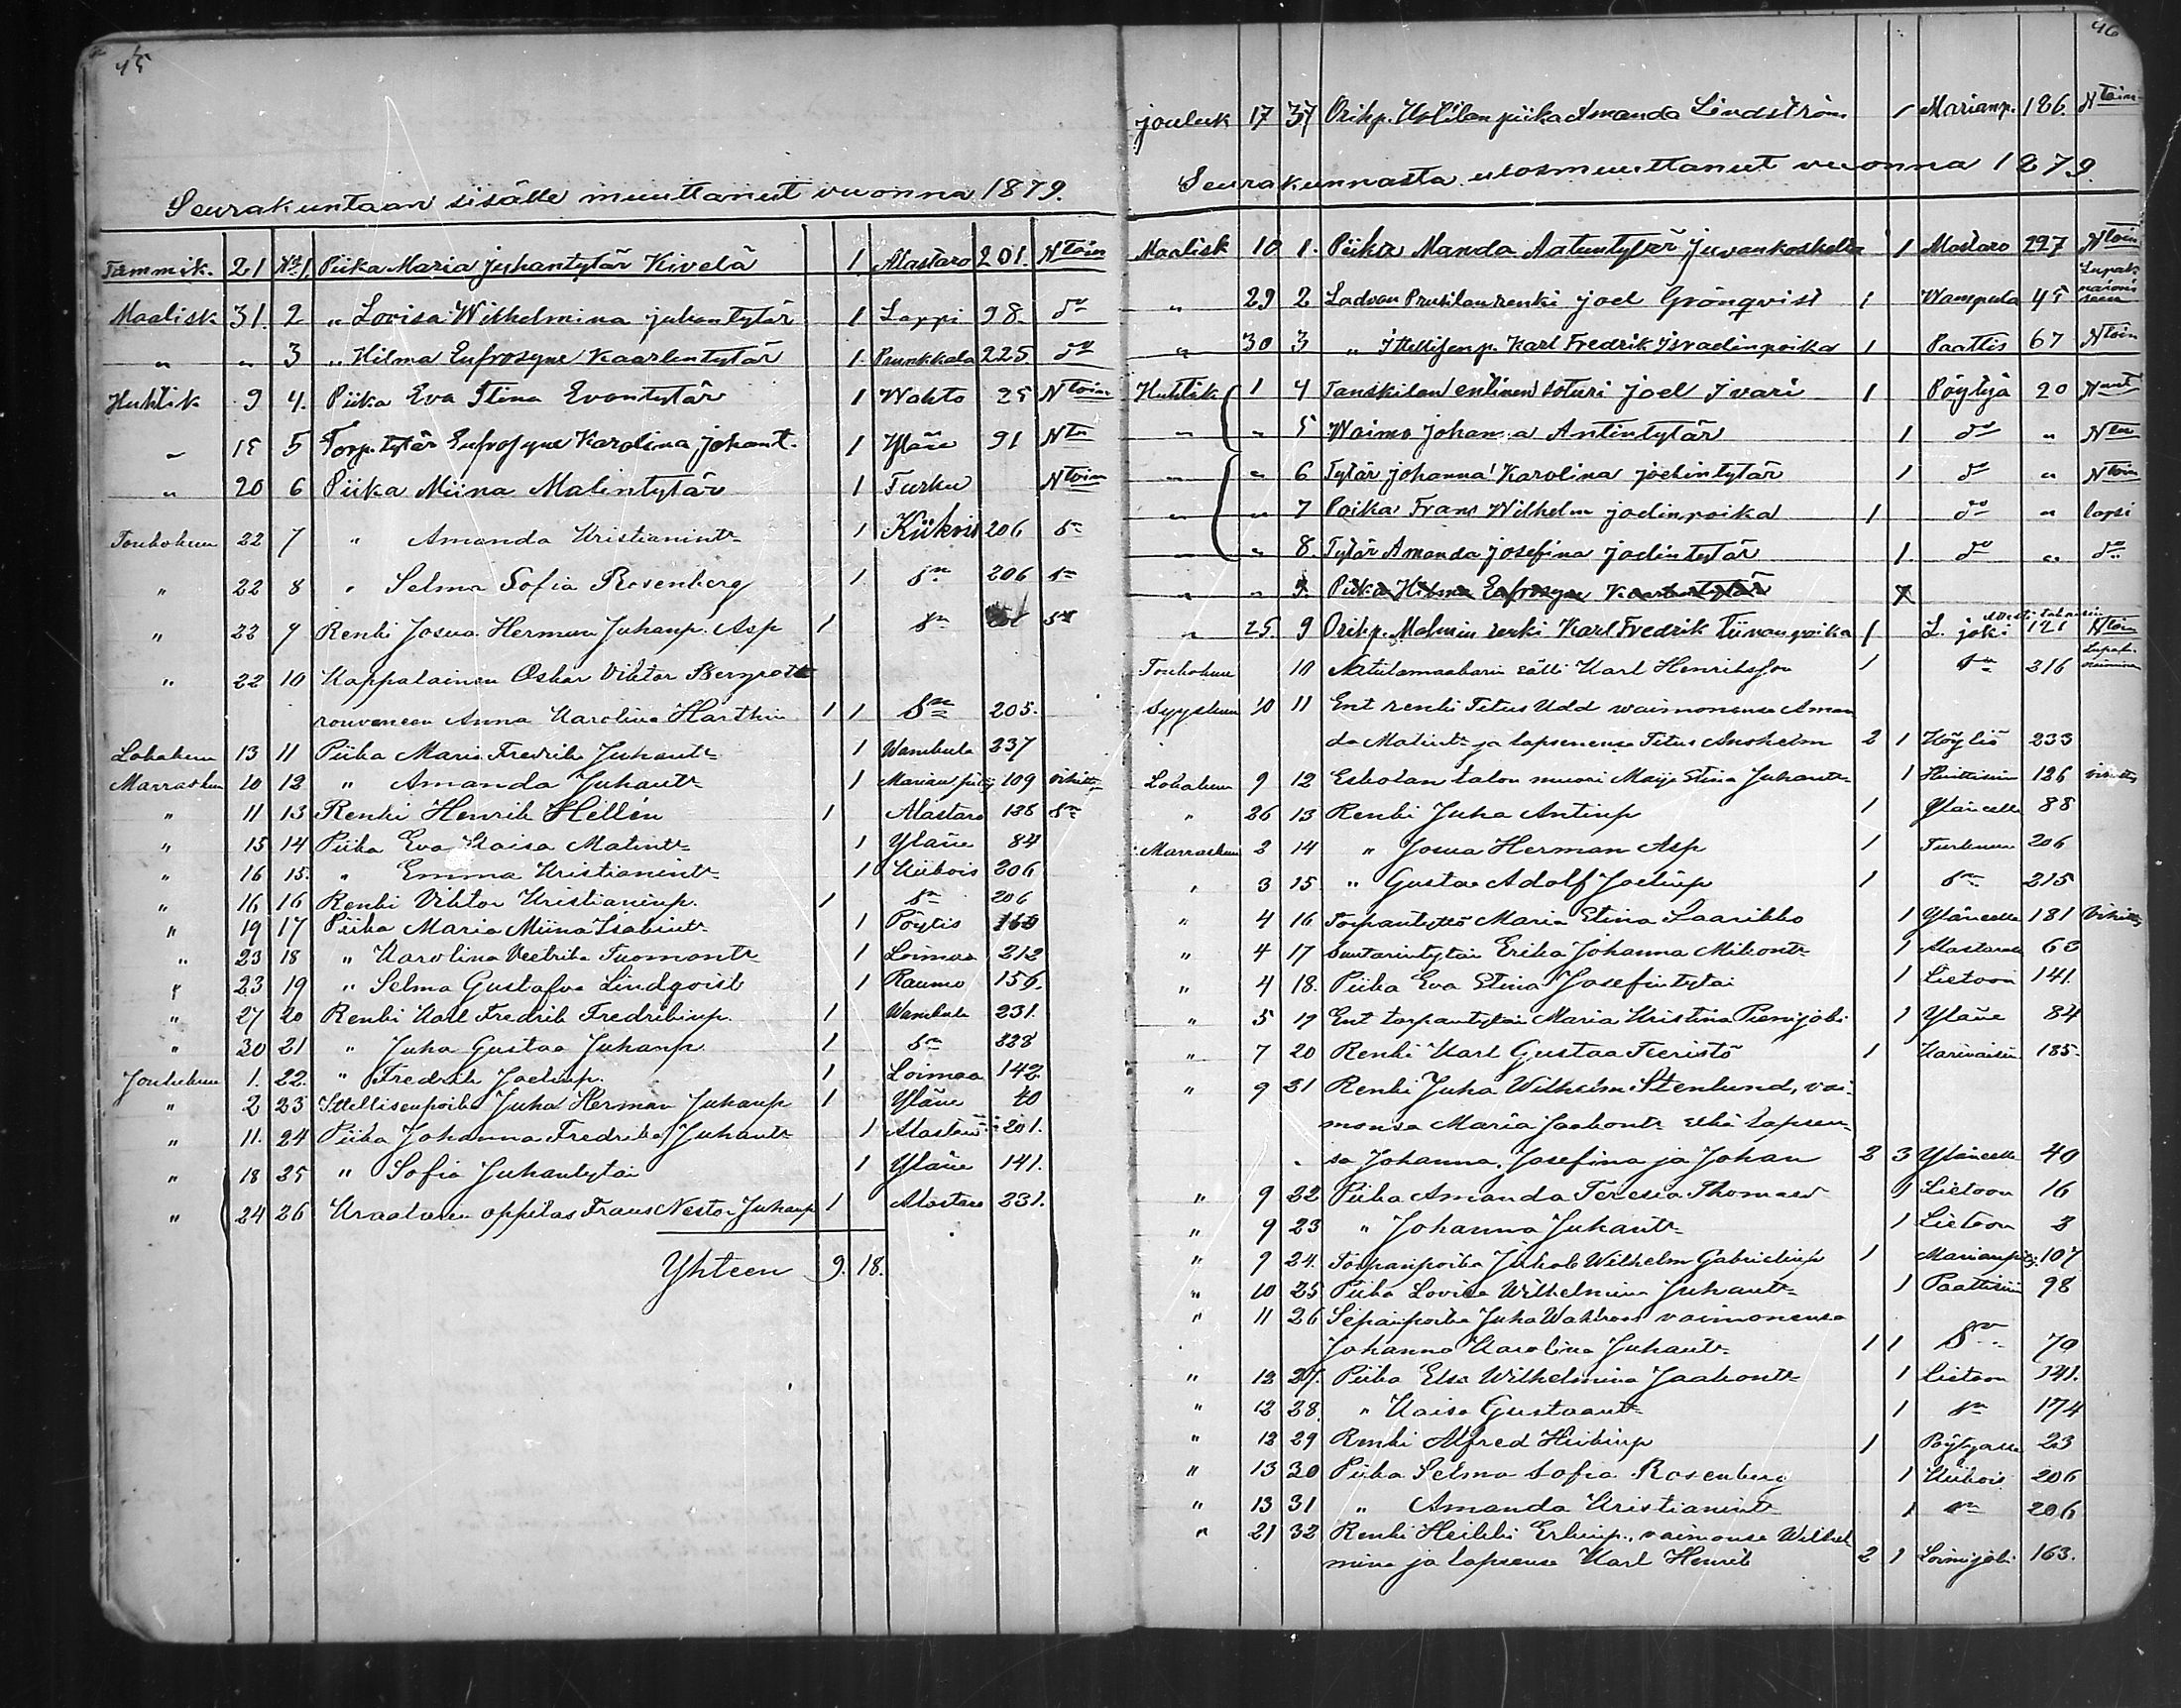 45
Seurakuntaan sisälle muuttanut vuonna 1879.
Tammik. 21 No 1 Piika Maria Juhantytär Kivelä 1 Alastaro 201. Ntoin
Maalisk 31. 2 „ Lovisa Wilhelmina juhantytär 1 Lappi 98. do
„ „ 3 „ Hilma Eufrosyne Kaarlentytär 1 Prunkkala 225. do
Huhtik 9 4. Piika Eva Stina Evantytär 1 Wahto 25 Ntoin
„ 15 5 Torp. tytär Eufrosyne Karolina johant. 1 Yläne 91 Ntn
„ 20 6 Piika Miina Matintytär 1 Turku Ntoin
Toukokuu 22 7 „ Amanda Kristianintr 1 Kiikois 206 dn
„ 22 8 „ Selma Sofia Rosenberg 1 dn 206 dn
„ 22 9 Renki Josua Herman Juhanp. Asp 1 dn dn
„ 22 10 Kappalainen Oskar Viktor
rouvaneen Anna Karolina 1 1 dn 205.
Lokakuu 13 11 Piika Maria Fredrika Juhantr 1 Wambula 237
Marraskuu 10 12 „ Amanda Juhantr 1 109
„ 11 13 Renki Henrik Hellén 1 Alastaro 138 dn
„ 15 14 Piika Eva Kaisa Matintr 1 Yläne 84
„ 16 15. „ Emma Kristianintr 1 Kiikois 206
„ 16 16 Renki Viktor Kristianinp. 1 dn 206
„ 19 17 Piika Maria Miina Isakintr 1 Pöytis
„ 23 18 „ Karolina Veetrika Tuomontr 1 Loimaa 212
„ 23 19 „ Selma Gustafva Lindqvist 1 Raumo 156.
„ 27 20 Renki Karl Fredrik Fredrikinp. 1 Wambula 231.
„ 30 21 „ Juha Gustaa Juhanp 1 dn 228
Joulukuu 1. 22. „ Fredrik Joelinp. 1 Loimaa 142.
„ 2 23 Itellisenpoika Juha Herman Juhanp 1 Yläne 40
„ 11. 24 Piika Johanna Fredrika Juhantr 1 Alastaro 201.
„ 18 25 „ Sofia Juhantytär 1 Yläne 141.
„ 24 26 oppilas Frans Nestor Juhanp 1 Alastaro 231.
Yhteen 9. 18.
46
jouluk 17 37 Orihp. Uotilan piika Amanda Lindström 1 Marianp. 186. Ntoin
Seurakunnasta ulosmuuttanut vuonna 1879.
Maalisk 10 1. Piika Manda Aatuntytär Juvankoskelta 1 Alastaro 297 Ntoin
„ 29 2 Ladvan Prusilan renki joel Grönqvist 1 Wampula 45
„ 30 3 „ Itellisenp. Karl Fredrik Israelinpoika 1 Paattis 67 Ntoin
Huhtik 1 4 Tanskilan entinen soturi joel Ivari 1 Pöytyä 20
„ „ 5 Waimo Johanna Antintytär 1 do „ Ntn
„ „ 6 Tytär johanna Karolina joelintytär 1 do „ Ntoin
„ „ 7 Poika Frans Wilhelm joelinpoika 1 do „ lapsi
„ „ 8. Tytär Amanda josefina joelintytär 1. do „ do
„ „ 9. Piika Hilma Eufrosyne Kaarlentytär
„ 25 9 Orihp. Malmin renki Karl Fredrik Tiinanpoika 1 L. joki 121 Ntoin
Toukokuu 10 sälli Karl Henriksson 1 dn 216
Syyskuu 10 11 Ent renki Titus Udd vaimonensa Aman
da Matintr ja lapsenensa Titus Anshelm 2 1 Köyliö 233
Lokakuu 9 12 Eskolan talon muori Maija Stina Juhantr 1 Huittisiin 126
„ 26 13 Renki Juha Antinp 1 Yläneelle 88
Marraskuu 2 14 „ Josua Herman Asp 1 Turkuun 206
„ 3 15. „ Gustaa Adolf Joelinp 1 dn 215
„ 4 16 Torpantyttö Maria Stina Laarikko 1 Yläneelle 181
„ 4 17 Erika Johanna Mikontr 1 Alastarolle 63
„ 4 18. Piika Eva Stina Josefintytär 1 Lietoon 141.
„ 5 19 Ent torpantytär Maria Kristina Pienijoki 1 Yläne 84
„ 7 20 Renki Karl Gustaa Teeristö 1 185.
„ 9 21 Renki Juha Wilhelm Stenlund, vai-
monsa Maria Jaakontr sekä lapsen-
sa Johanna, Josefina ja Johan 2 3 Yläneelle 40
„ 9 22 Piika Amanda Teresia 1 Lietoon 16
„ 9 23 „ Johanna Juhantr 1 Lietoon 3
„ 9 24. Torpanpoika Jakob Wilhelm Gabrielinp 1 107
„ 10 25 Piika Lovisa Wilhelmina Juhantr 1 Paattisiin 98
„ 11 26 Sepänpoika Juha vaimonensa
Johanna Karolina Juhantr 1 1 dn 70
„ 12 27. Piika Elsa Wilhelmina Jaakontr 1 Lietoon 141.
„ 12 28. „ Kaisa Gustaantr 1 dn 174
„ 12 29 Renki Alfred Heikinp 1 Pöytyälle 23
„ 13 30 Piika Selma Sofia Rosenberg 1 Kiikois 206
„ 13 31 „ Amanda Kristianintr 1 dn 206
„ 21 32 Renki Heikki Erkinp., vaimonsa Wilhel
mina ja lapsensa Karl Henrik 2 1 Loimijoki 163.